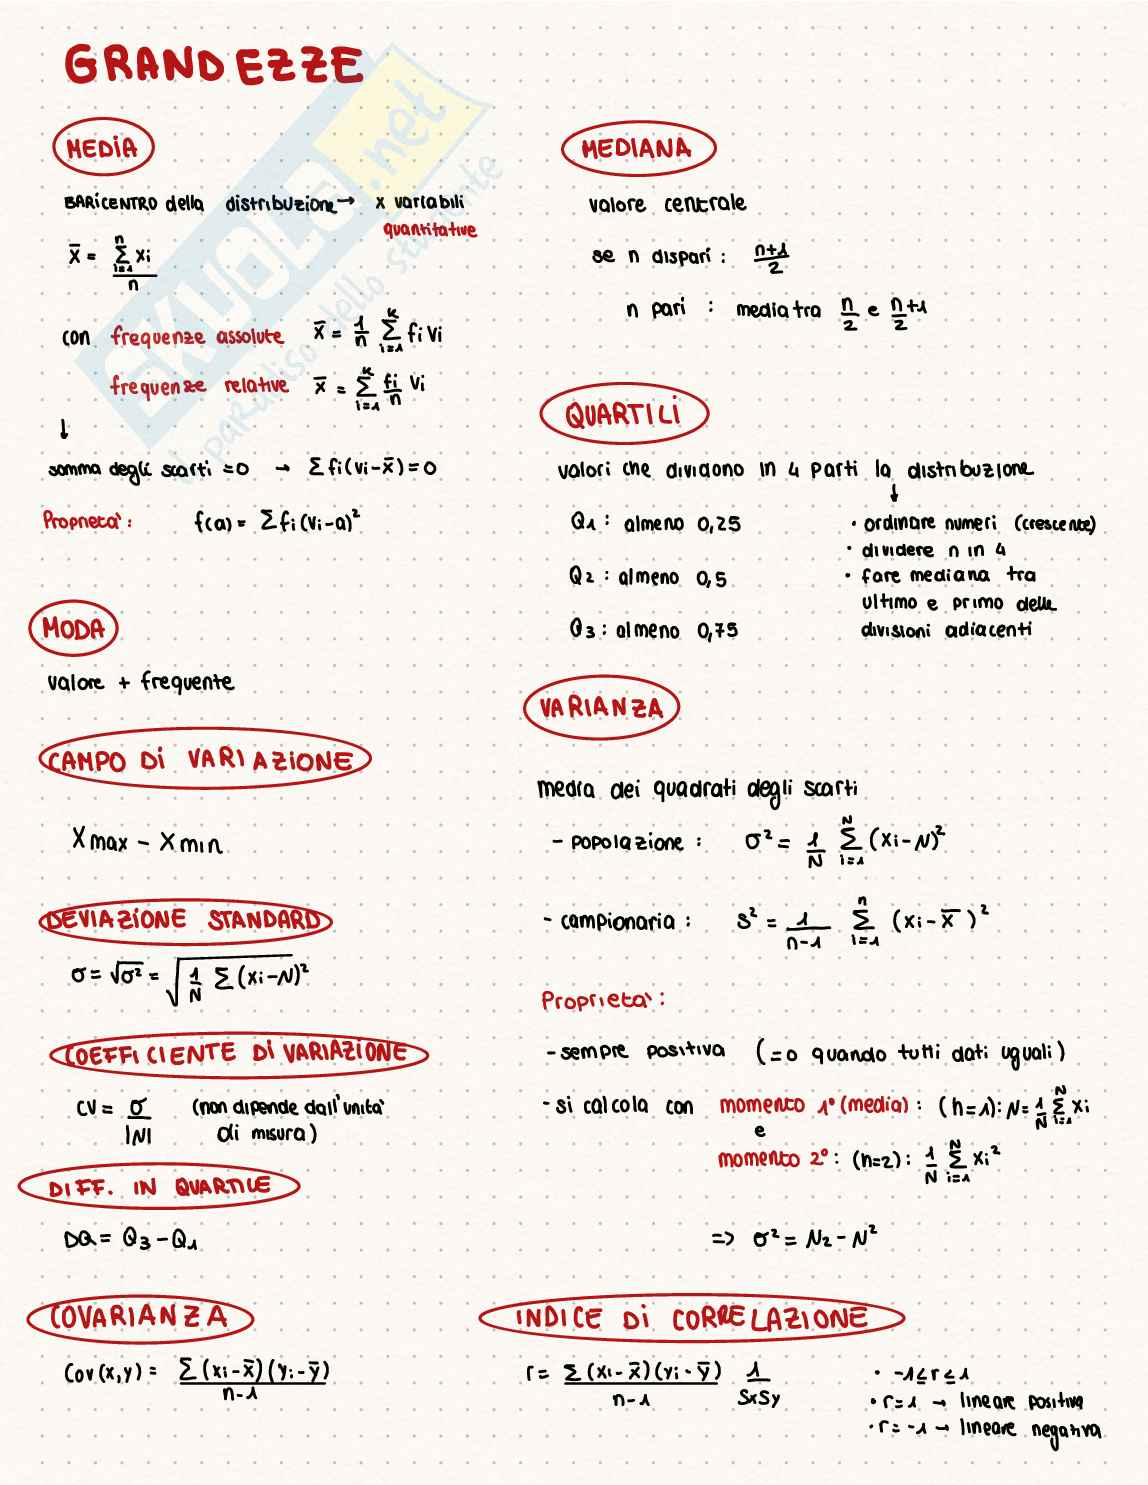 GRANDEZZE
MEDIA
BARICENTRO della distribuzione → x variabili
quantitative
x̄ = Σ(i=1, n) xi / n
con frequenze assolute x̄ = 1/n Σ(i=1, k) fi vi
frequenze relative x̄ = Σ(i=1, k) fi/n vi
↓
somma degli scarti = 0 → Σ fi (vi - x̄) = 0
Proprietà: f(a) = Σ fi (vi - a)²
MODA
valore + frequente
CAMPO DI VARIAZIONE
Xmax - Xmin
DEVIAZIONE STANDARD
σ = √σ² = √(1/N Σ (xi - N)²)
COEFFICIENTE DI VARIAZIONE
CV = σ / |N| (non dipende dall'unità
di misura)
DIFF. IN QUARTILE
DQ = Q3 - Q1
COVARIANZA
Cov(x,y) = Σ (xi - x̄)(yi - ȳ) / n-1
MEDIANA
valore centrale
se n dispari: n+1 / 2
n pari: media tra n/2 e n/2 + 1
QUARTILI
valori che dividono in 4 parti la distribuzione
↓
Q1: almeno 0,25
Q2: almeno 0,5
Q3: almeno 0,75
• ordinare numeri (crescente)
• dividere n in 4
• fare mediana tra
ultimo e primo delle
divisioni adiacenti
VARIANZA
media dei quadrati degli scarti
- popolazione: σ² = 1/N Σ(i=1, N) (xi - N)²
- campionaria: s² = 1/n-1 Σ(i=1, n) (xi - x̄)²
Proprietà:
- sempre positiva (=0 quando tutti dati uguali)
- si calcola con momento 1° (media): (h=1): N = 1/N Σ(i=1, N) xi
e
momento 2°: (h=2): 1/N Σ(i=1, N) xi²
=> σ² = N2 - N²
INDICE DI CORRELAZIONE
r = Σ (xi - x̄)(yi - ȳ) / n-1 1 / SxSy
• -1 ≤ r ≤ 1
• r = 1 → lineare positiva
• r = -1 → lineare negativa
SKUOLA.net
il paradiso dello studente